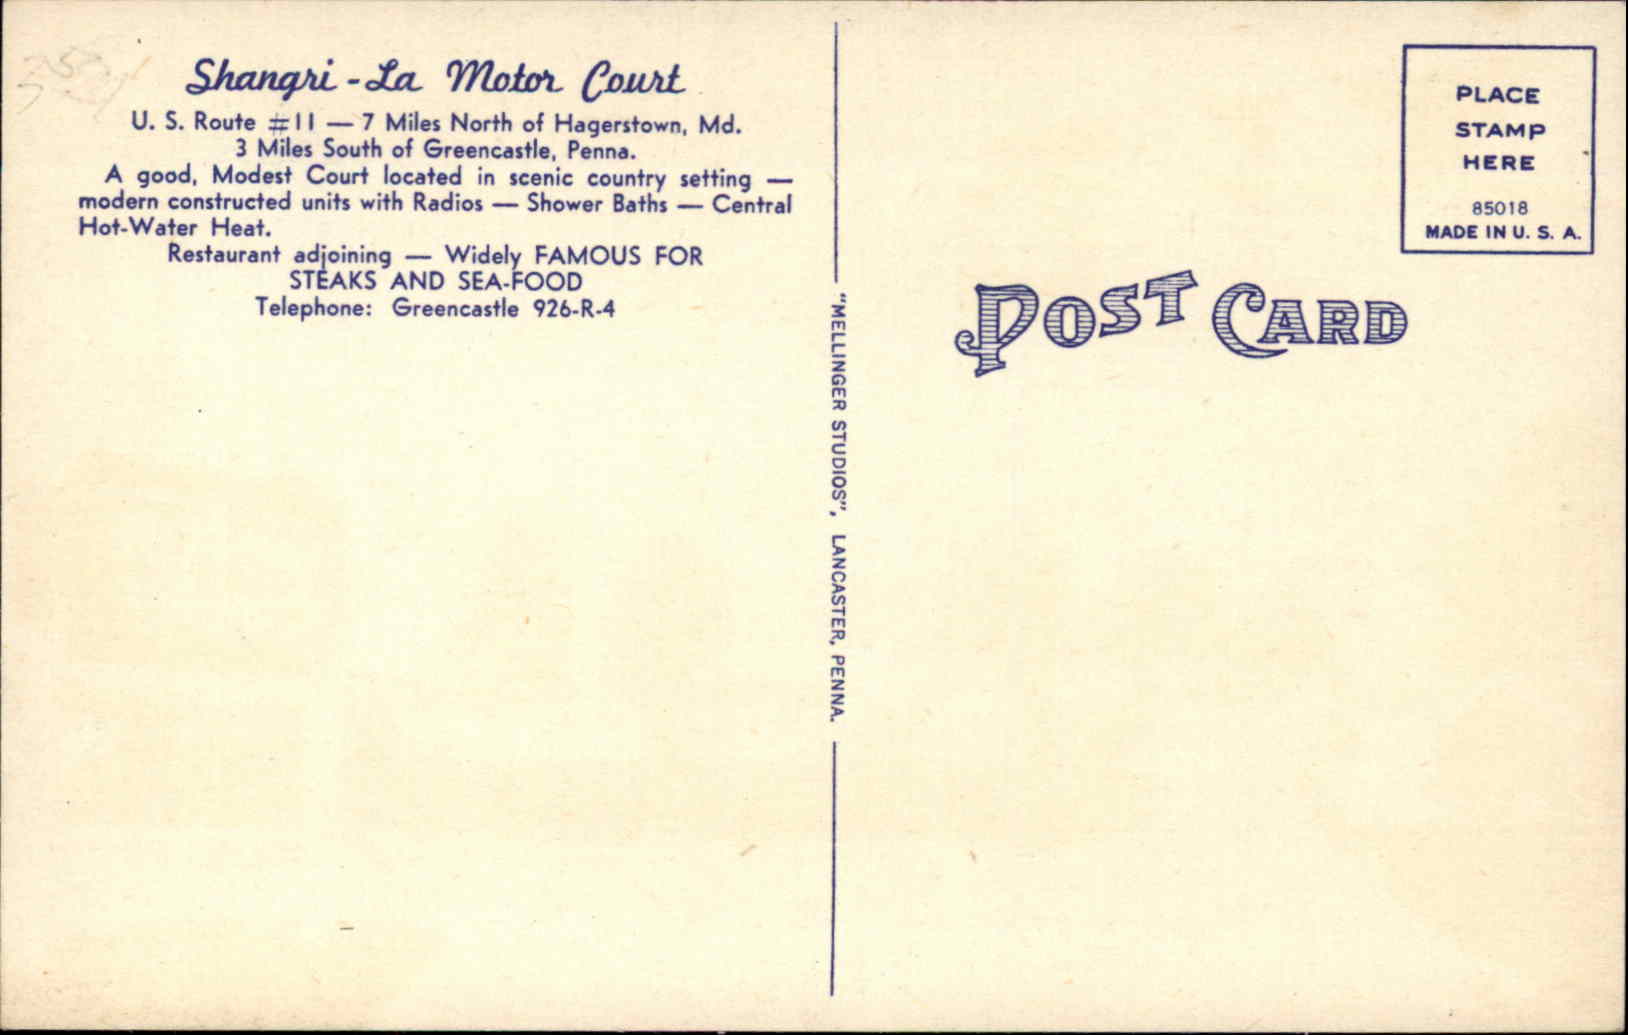 Shangri-La Motor Court
U. S. Route #11 — 7 Miles North of Hagerstown, Md.
3 Miles South of Greencastle, Penna.
A good, Modest Court located in scenic country setting —
modern constructed units with Radios — Shower Baths — Central
Hot-Water Heat.
Restaurant adjoining — Widely FAMOUS FOR
STEAKS AND SEA-FOOD
Telephone: Greencastle 926-R-4
"MELLINGER STUDIOS", LANCASTER, PENNA.
PLACE
STAMP
HERE
85018
MADE IN U. S. A.
POST CARD